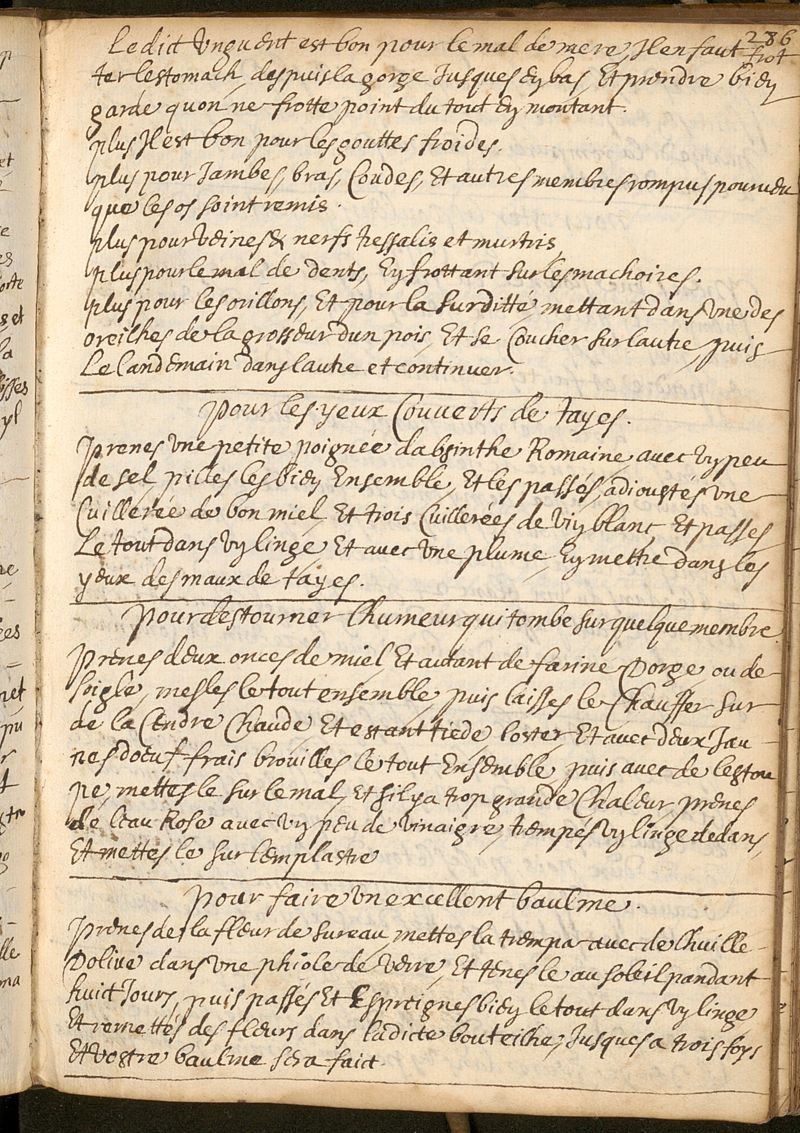 286
Ledict Unguent est bon pour le mal de mere, Il en faut frot
ter lestomach, despuis la gorge Jusques Ey bas, Et prendre biey
garde quon ne frotte point du tout Ey montant.
plus Il est bon pour les gouttes froides.
plus pour Jambes, bras, Coudes, Et autres membres rompus pourveu
que les os soint remis.
plus pour veines & nerfs tressalis et murtris,
plus pour le mal de dents, Ey frottant sur les machoires.
plus pour les orillons, Et pour la surditté mettant dans Une des
oreilhes de la grosseur dun pois, Et se Coucher sur lautre, puis
Le landemain dans lautre et continuer.
pour les yeux Couverts de tayes.
Prenes Une petite poignée dabsinthe Romaine, avec Uy peu
de sel, piles les biey Ensemble, Et les passés, adioustés Une
Cuillerée de bon miel, Et trois Cuillerées de viy blanc, Et passes
Le tout dans Uy linge, Et avec Une plume, Ey mettre dans les
yeux des maux de tayes.
Pour destourner lhumeur qui tombe sur quelque membre.
Prenes deux onces de miel, Et autant de farine Dorge ou de
soigle, mesles le tout ensemble, puis laisses le Chauffer sur
de la Cendre Chaude, Et estant tiede loster, Et avec deux Jau-
nes doeuf frais brouilles le tout Ensemble, puis avec de lestou
pe, mettes le sur le mal, Et sil y a trop grande Chaleur, prenes
de leau Rose avec Uy peu de vinaigre, trempés Uy linge dedans,
Et mettes le sur lemplastre
Pour faire Un excellent baulme.
Prenes de la fleur de sureau, mettes la tremper avec de lhuille
Dolive dans Une phiole de verre, Et tenes le au soleil pandant
huict Jours, puis passés Et Espreignes biey le tout dans Uy linge
Et remettés des fleurs dans ladicte bouteilhe, Jusques a trois foys
Et vostre baulme sera faict.